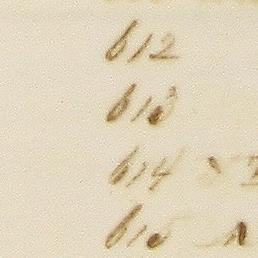 612
613
614
615